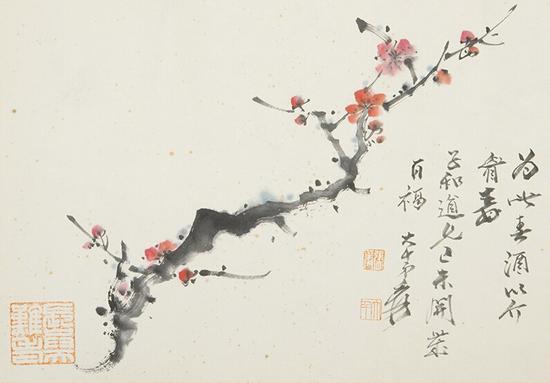 為此春酒以介
眉壽
和道兄己未開歲
百福 大千弟爰